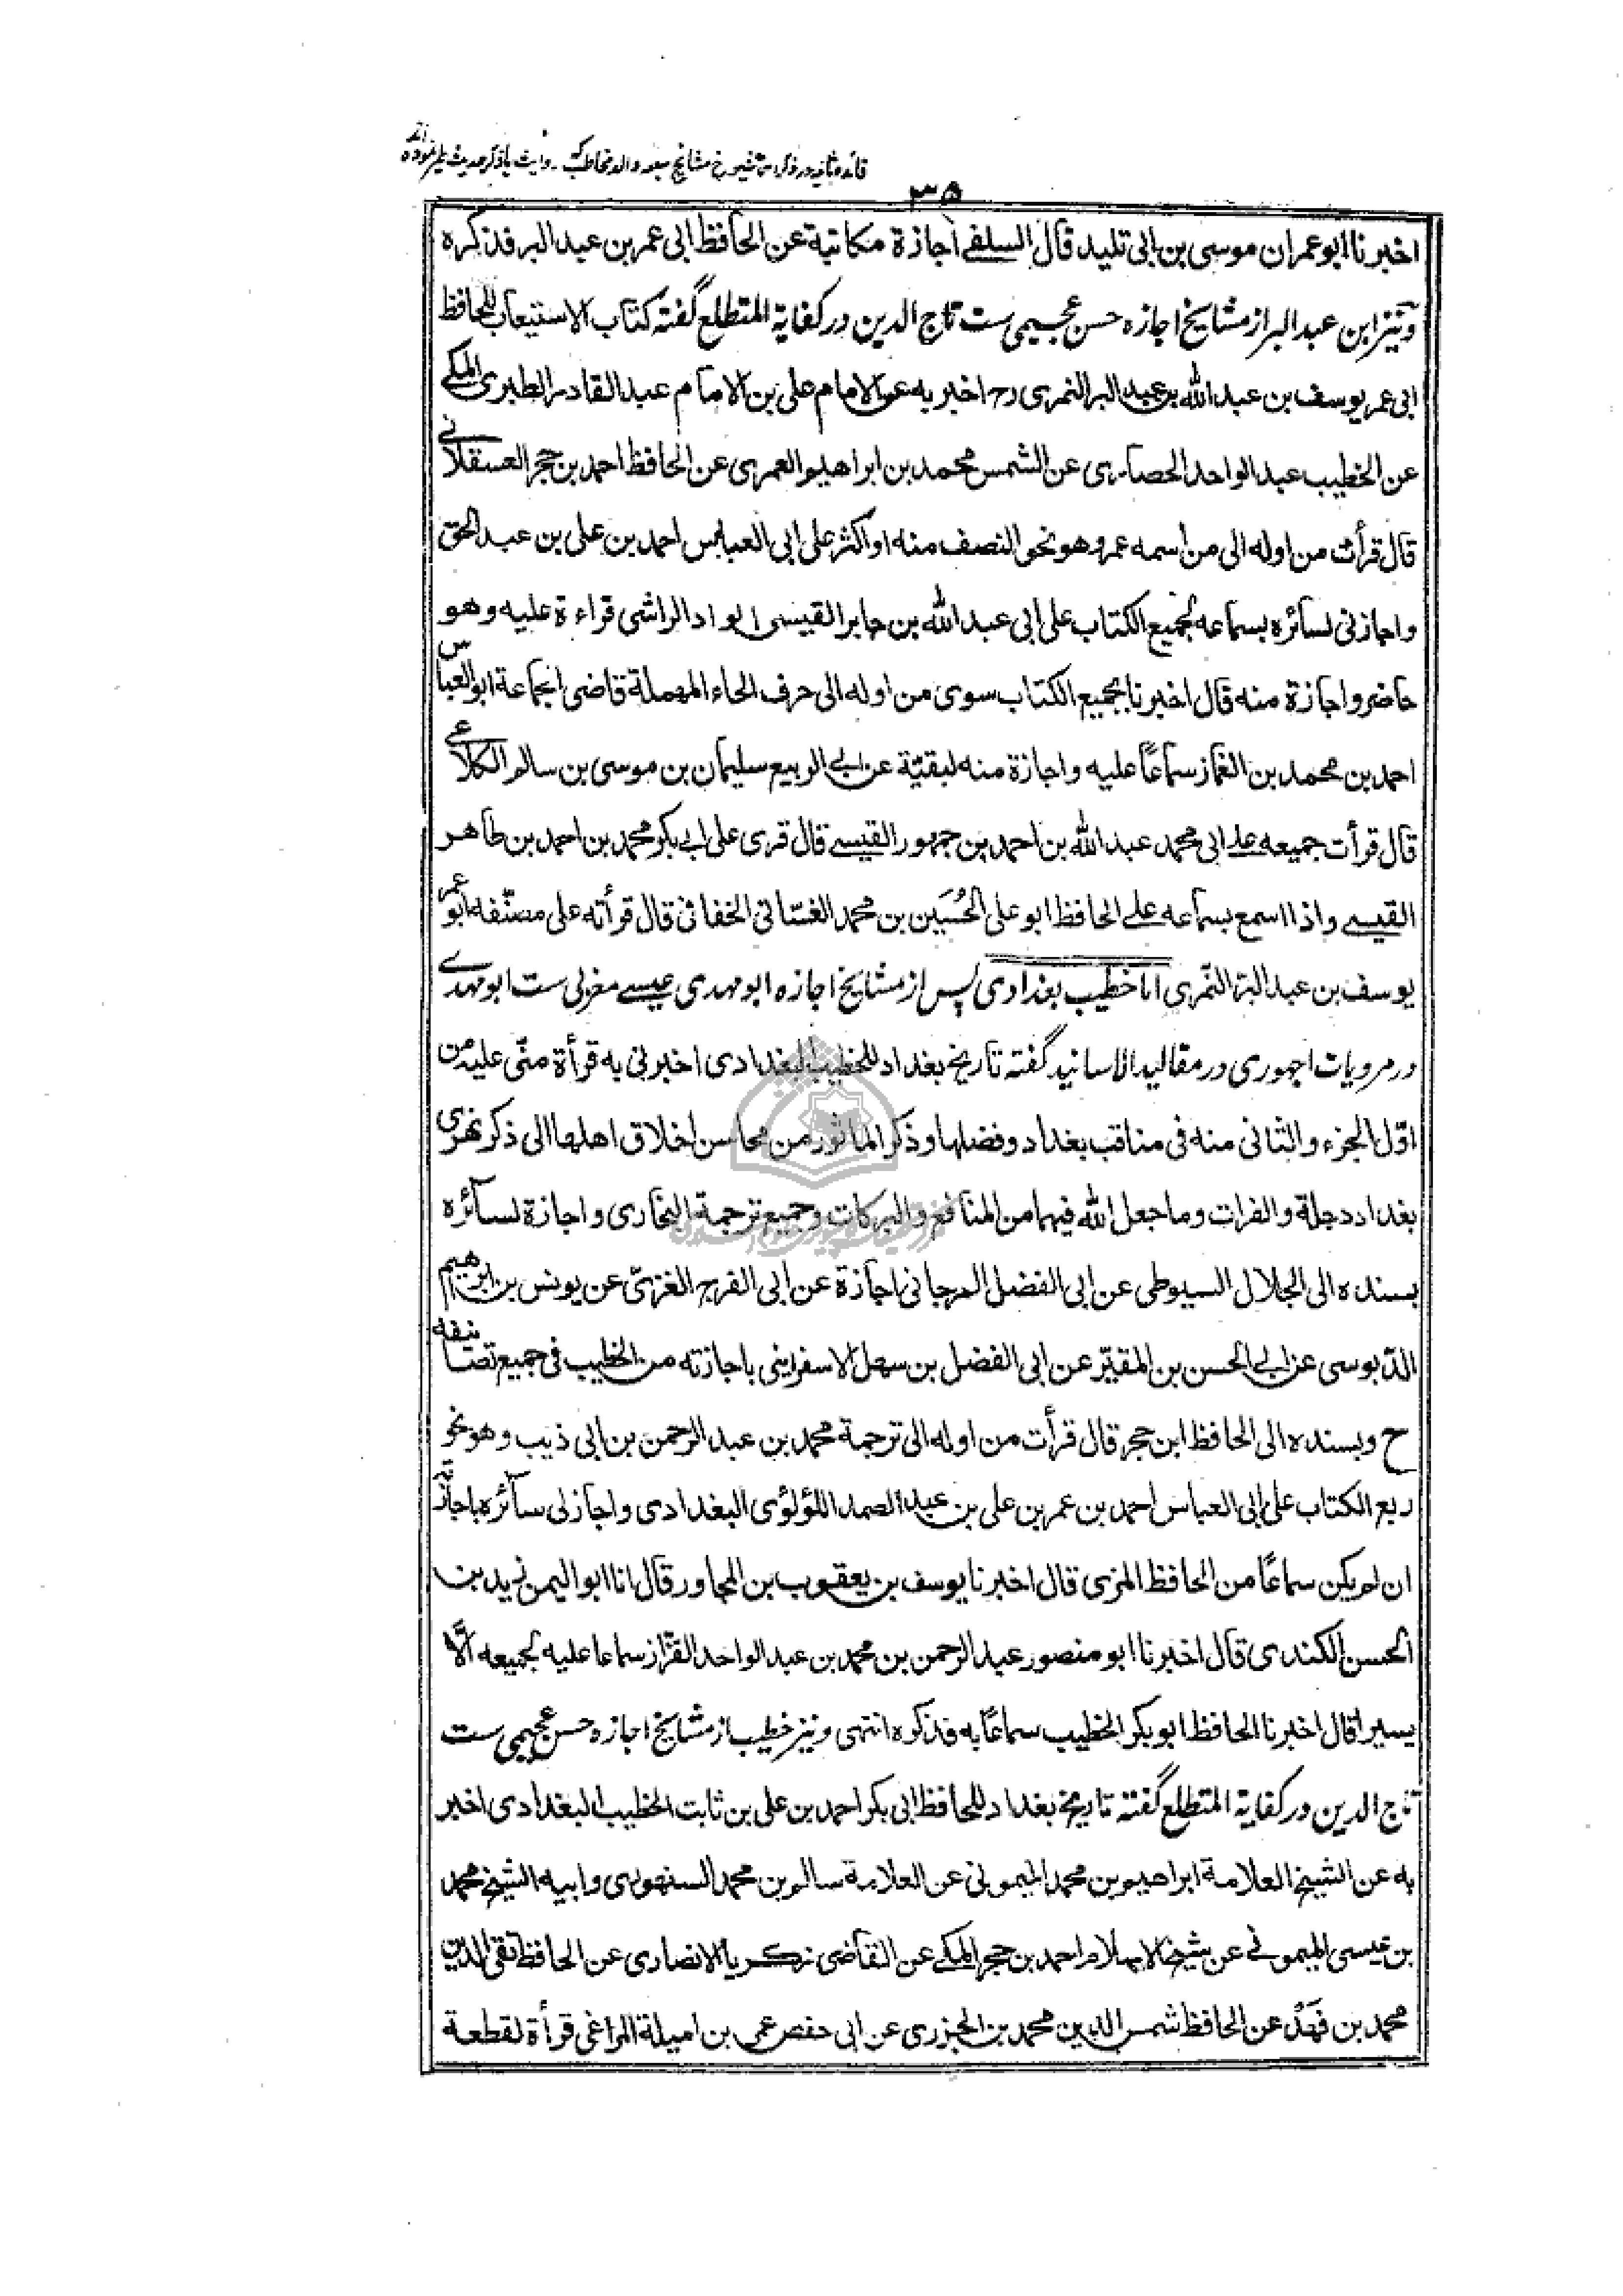 فائده ثانيه در ذكر شيوخ مشايخ سبعه والد مخاطب كه روايت يا ذكر حديث طير نموده اند
٣٥
اخبرنا ابو عمران موسى بن ابى تليد قال السلفى اجازة مكاتبة عن الحافظ ابى عمر بن عبد البر فذكره
و نيز ابن عبد البر از مشايخ اجازه حسن عجيمى ست تاج الدين در كفاية المتطلع گفته كتاب الاستيعاب للحافظ
ابى عمر يوسف بن عبد الله بن عبد البر النمرى رح اخبر به عن الامام على بن الامام عبد القادر الطبرى المكى
عن الخطيب عبد الواحد الحصارى عن الشمس محمد بن ابراهيم العمرى عن الحافظ احمد بن حجر العسقلانى
قال قرأت من اوله الى من اسمه عمرو هو نحو النصف منه او اكثر على ابى العباس احمد بن على بن عبد الحق
و اجازنى لسائره بسماعه لجميع الكتاب على ابى عبد الله بن جابر القيسى الوادالراشى قراءة عليه و هو
حاضر و اجازة منه قال اخبرنا بجميع الكتاب سوى من اوله الى حرف الحاء المهملة قاضى الجماعة ابو العباس
احمد بن محمد بن الغماز سماعاً عليه و اجازة منه لبقيّة عن ابى الربيع سليمان بن موسى بن سالم الكلاعى
قال قرأت جميعه على ابى محمد عبد الله بن احمد بن جمهور القيسى قال قرى على ابى بكر محمد بن احمد بن طاهر
القيسى و اذا اسمع بسماعه على الحافظ ابو على الحُسَين بن محمد الغسّانى الخفانى قال قرأته على مصنّفه ابو عمر
يوسف بن عبد البرّ النّمرى اما خطيب بغدادى پس از مشايخ اجازه ابو مهدى عيسى مغربى ست ابو مهدى
در مرويات اجهورى در مقاليد الاسانيد گفته تاريخ بغداد للخطيب البغدادى اخبرنى به قرأة منّى عليه من
اوّل الجزء و الثانى منه فى مناقب بغداد و فضلها و ذكر الماثور من محاسن اخلاق اهلها الى ذكر نهرى
بغداد دجلة و الفرات و ما جعل الله فيهما من المنافع و البركات و جميع ترجمة البخارى و اجازة لسآئره
بسنده الى الجلال السيوطى عن ابى الفضل المرجانى اجازة عن ابى الفرج الغزّى عن يونس بن ابرهيم
الدّبوسى عن ابى الحسن بن المقيّر عن ابى الفضل بن سهل الاسفراينى باجازته من الخطيب فى جميع تصانيفه
ح و بسنده الى الحافظ ابن حجر قال قرأت من اوله الى ترجمة محمد بن عبد الرحمن بن ابى ذيب و هو نحو
ربع الكتاب على ابى العباس احمد بن عمر بن على بن عبد الصمد اللؤلؤى البغدادى و اجازلى سآئره باجازته
ان لم يكن سماعًا من الحافظ المزى قال اخبرنا يوسف بن يعقوب بن المجاور قال انا ابو اليمن زيد بن
الحسن الكندى قال اخبرنا ابو منصور عبد الرحمن بن محمد بن عبد الواحد القزّاز سماعا عليه لجميعه الّا
يسيرا قال اخبرنا الحافظ ابو بكر الخطيب سماعًا به فذكره انتهى و نيز خطيب از مشايخ اجازه حسن عجيمى ست
تاج الدين در كفاية المتطلع گفته تاريخ بغداد للحافظ ابى بكر احمد بن على بن ثابت الخطيب البغدادى اخبر
به عن الشيخ العلامة ابراهيم بن محمد الميمونى عن العلامة سالم بن محمد السنهورى و ابيه الشيخ محمد
بن عيسى الميمونى عن شيخ الاسلام احمد بن حجر المكى عن القاضى زكريا الانصارى عن الحافظ تقى الدين
محمد بن فَهَدْ عن الحافظ شمس الدين محمد بن الجزرى عن ابى حفص عمر بن اميلة المراغى قرأة لقطعة